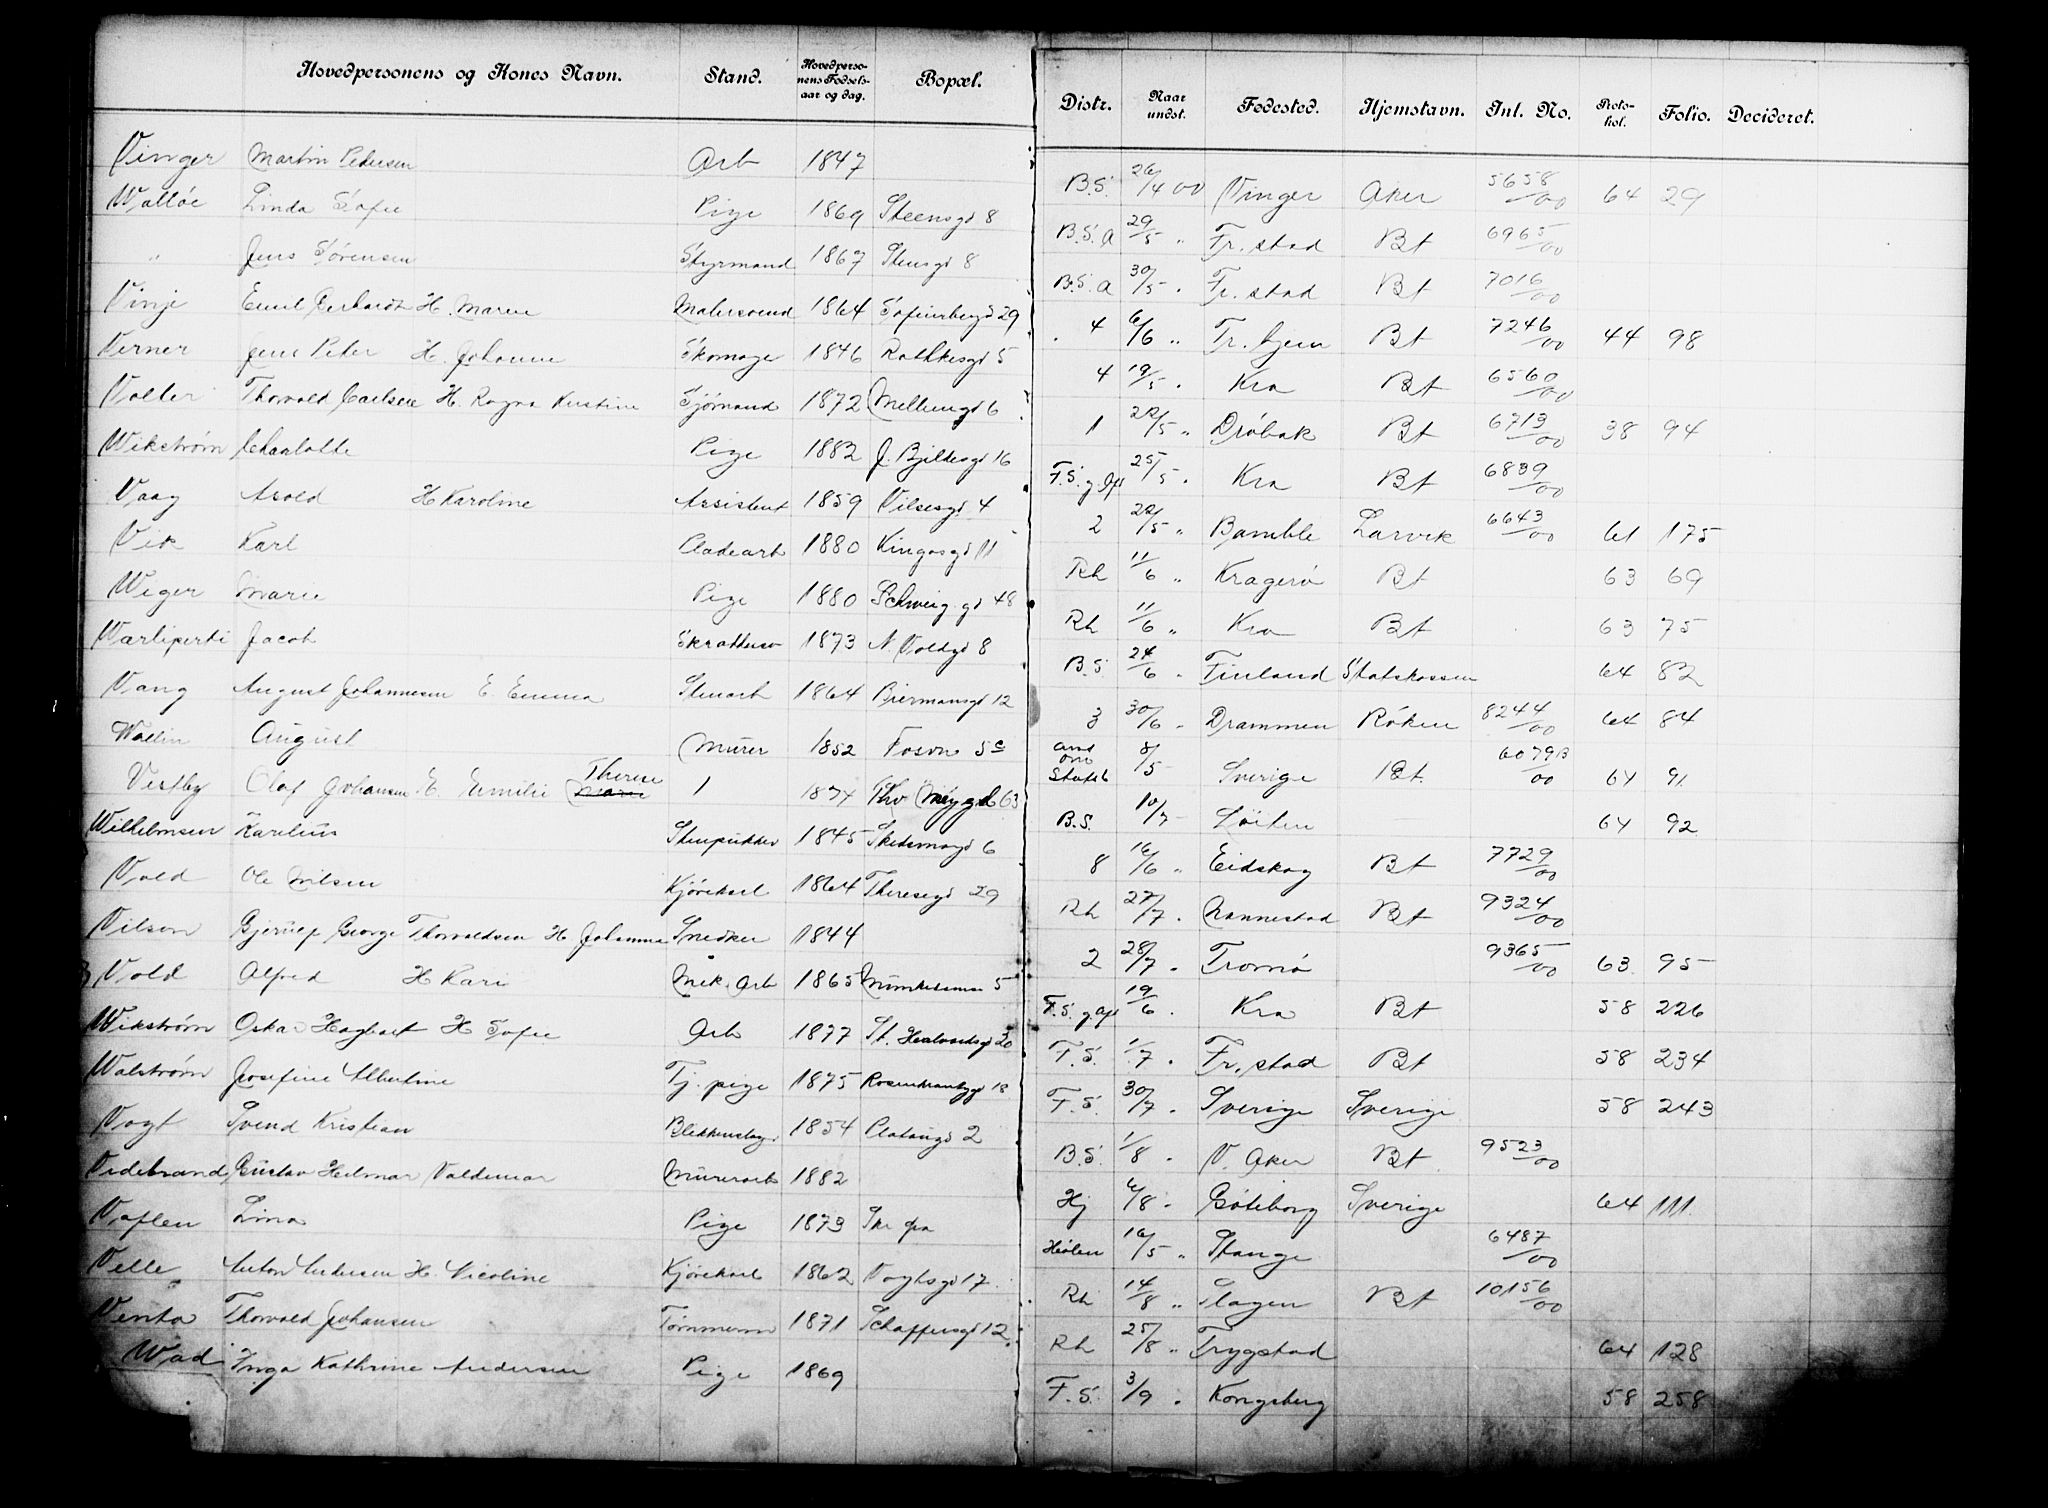 Hovedpersonens og Kones Navn. Stand. Hovedperso-nens Fødsels-aar og dag. Bopæl. Distr. Naar undst. Fødested. Hjemstavn. Int. No. Proto-kol. Folio. Decideret.
Vinger Martin Pedersen Arb 1847 B.S. 26/4 00 Vinger Aker 5658/00 64 29
Walløe Linda Sofie Pige 1869 Steensgd 8 B.S. a 29/5 „ Fr. stad Bt 6965/00
„ Jens Sørensen Styrmand 1867 Stensgd 8 B.S. a 30/5 „ Fr. stad Bt 7016/00
Vinje Emil Gerhardt H. Maren Malersvend 1864 Sofienbergd 29 4 6/6 „ Tr. hjem Bt 7246/00 44 98
Verner Jens Peter H. Johanne Skomager 1846 Rathkesgd 5 4 19/5 „ Kra Bt 6560/00
Valler Thorvald Carlsen H. Ragna Kristine Sjømand 1872 Mellumgd 6 1 22/5 „ Drøbak Bt 6713/00 38 94
Wikstrøm Charlotte Pige 1882 J. Bjelkesgd 16 F.S. g. Aps 25/5 „ Kra Bt 6839/00
Vaag Arold H Karoline Assistent 1859 Vilsesgd 4 2 22/5 „ Bamble Larvik 6643/00 61 175
Vik Karl Pladearb 1880 Kingosgd 11 Rh 11/6 „ Kragerø Bt 63 69
Wiger Marie Pige 1880 Schweig. gd 48 Rh 11/6 „ Kra Bt 63 75
Jacob 1873 N Voldgd 8 B.S. 24/6 „ Finland Statskassen 64 82
Vang August Johannesen E. Emma Stenarb 1864 Biermansgd 12 3 30/6 „ Drammen Røken 8244/00 64 84
Wallin August Murer 1852 Fosvn 5c 8/5 Sverige Bt. 6079B/00 64 91.
Vestby Olaf Johansen E. Emilie Therese 1 1874 Thv Meygd 63 B.S. 10/7 Løiten 64 92
Wilhelmsen Karelius Stenpukker 1845 Skedsmogd 6 8 16/6 „ Eidskog Bt 7729/00
Vold Ole Nilsen Kjørekarl 1864 Theresegd 29 Rh 27/7 „ Nannestad Bt 9324/00
Vilson Gjerulf George Thorvaldsen H Johanna Snedker 1844 2 28/7 „ Tromsø 9365/00 63 95
Vold Alfred H Kari Mek. Arb 1865 5 F.S. g. Aps 19/6 „ Kra Bt 58 226
Wikstrøm Oskar Hagbart H Sofie Arb 1877 St. Halvardsgd 20 F.S. 1/7 „ Fr. stad Bt 58 234
Walstrøm Josefine Albertine Tj. pige 1875 Rosenkrantzgd 18 F.S. 30/7 „ Sverige Sverige 58 243
Vogt Svend Kristian Blikkenslager 1854 Platougd 2 B.S. 1/8 „ V. Aker Bt 9523/00
Videbrand Gustav Hilmar Valdemar Murerarb 1882 Hj 6/8 „ Gøteborg Sverige 64 111.
Vaflen Lina Pige 1873 Hølen 16/5 „ Stange 6487/00
Velle Anton Andersen H. Nicoline Kjørekarl 1862 Vogtsgd 17 Rh 14/8 „ Slagen Bt 10156/00
Venta Thorvald Johansen Tømmerm 1871 Schaffersgd 12 Rh 25/8 „ Trygstad 64 128
Wad Inga Kathrine Andersen Pige 1869 F.S. 3/9 „ Kongsberg 58 258